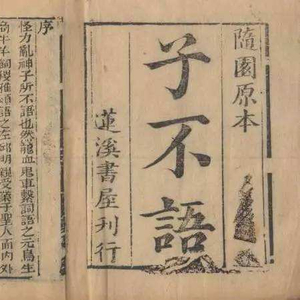 隨園原本
子不語
蓮溪書屋刊行
序
怪力亂神子所不語也然龍血鬼車繫詞語之元鳥生
商牛羊飼稷雅頌語之左邱明親受業于聖人而內外